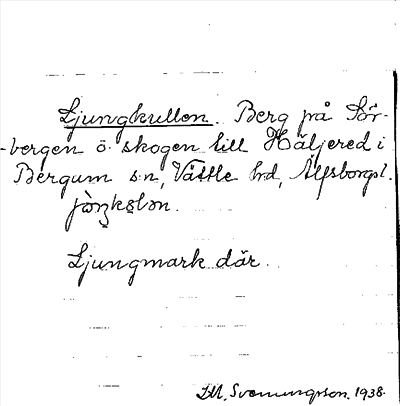 Ljungkullen. Berg på Sör-
-bergen ö. skogen till Häljered i
Bergum sn, Vättle hd, Älfsborgs l.
Ljungmark där.
Svenungson. 1938.